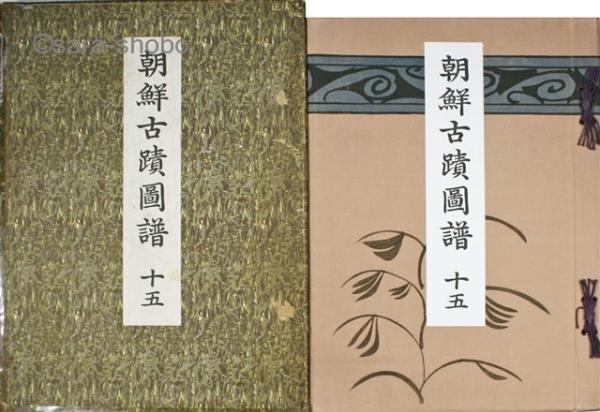 ©sara-shobo
朝鮮古蹟圖譜 十五
朝鮮古蹟圖譜 十五